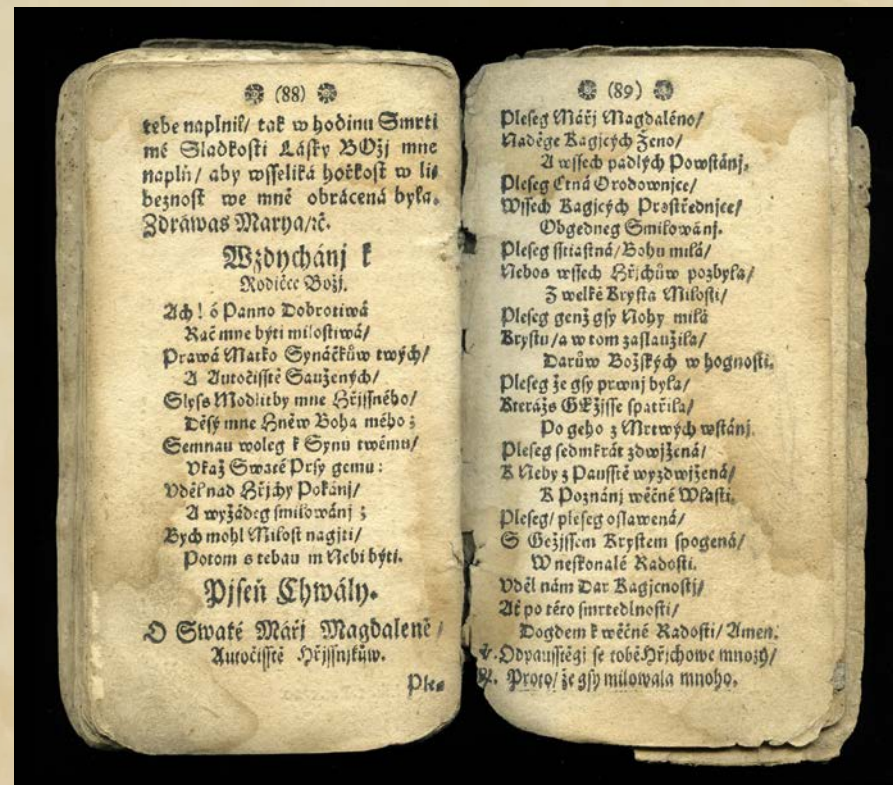 (88)
tebe naplnil/ tak w hodinu Smrti
mé Sladkosti Lásky BOžj mne
naplň/ aby wsseliká hořkost w li⸗
beznost we mně obrácená byla.
Zdráwas Marya/ꝛč.
Wzdychánj k
Rodičce Božj.
Ach! ó Panno Dobrotiwá
Rač mne býti milostiwá/
Prawá Matko Synáčkůw twých/
A Autočisstě Saužených/
Slyss Modlitby mne Hřjssného/
Děsý mne Hněw Boha mého;
Semnau woleg k Synu twému/
Vkaž Swaté Prsy gemu:
Vděl nad Hřjchy Pokánj/
A wyžádeg smilowánj;
Bych mohl Milost nagjti/
Potom s tebau m Nebi býti.
Pjseň Chwály.
O Swaté Mářj Magdaleně/
Autočisstě Hřjssnjkůw.
Ple⸗
(89)
Pleseg Mářj Magdaléno/
Naděge Kagjcých Ženo/
A wssech padlých Powstánj.
Pleseg Ctná Orodownjce/
Wssech Kagjcých Prostřednjce/
Obgedneg Smilowánj.
Pleseg sstiastná/ Bohu milá/
Nebos wssech Hřjchůw pozbyla/
Z welké Krysta Milosti/
Pleseg genž gsy Nohy milá
Krystu/ a w tom zaslaužila/
Darůw Božských w hognosti.
Pleseg že gsy prwnj byla/
Kterážs GEžjsse spatřila/
Po geho z Mrtwých wstánj.
Pleseg sedmkrát zdwjžená/
K Neby z Pausstě wyzdwjžená/
K Poznánj wěčné Wlasti.
Pleseg/ pleseg oslawená/
S Gežjssem Krystem spogená/
W neskonalé Radosti.
Vděl nám Dar Kagjcnostj/
Ať po této smrtedlnosti/
Dogdem k wěčné Radosti/ Amen.
℣. Odpausstěgj se tobě Hřjchowe mnozý/
℟. Proto/ že gsy milowala mnoho.